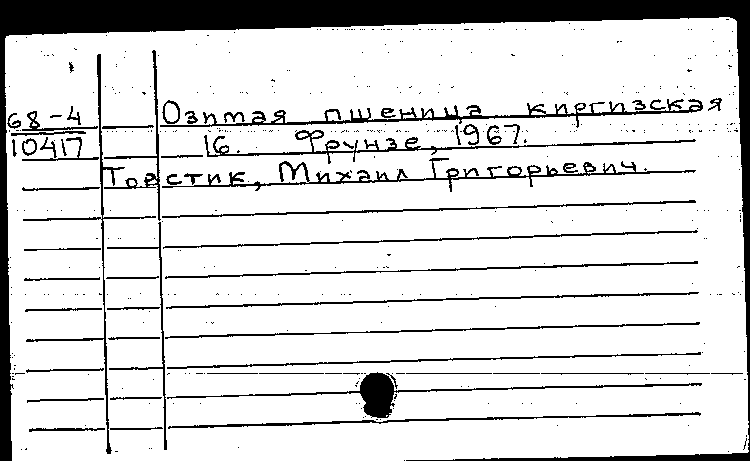 68-4
10417
Озимая пшеница киргизская
16. Фрунзе, 1967.
Товстик, Михаил Григорьевич.